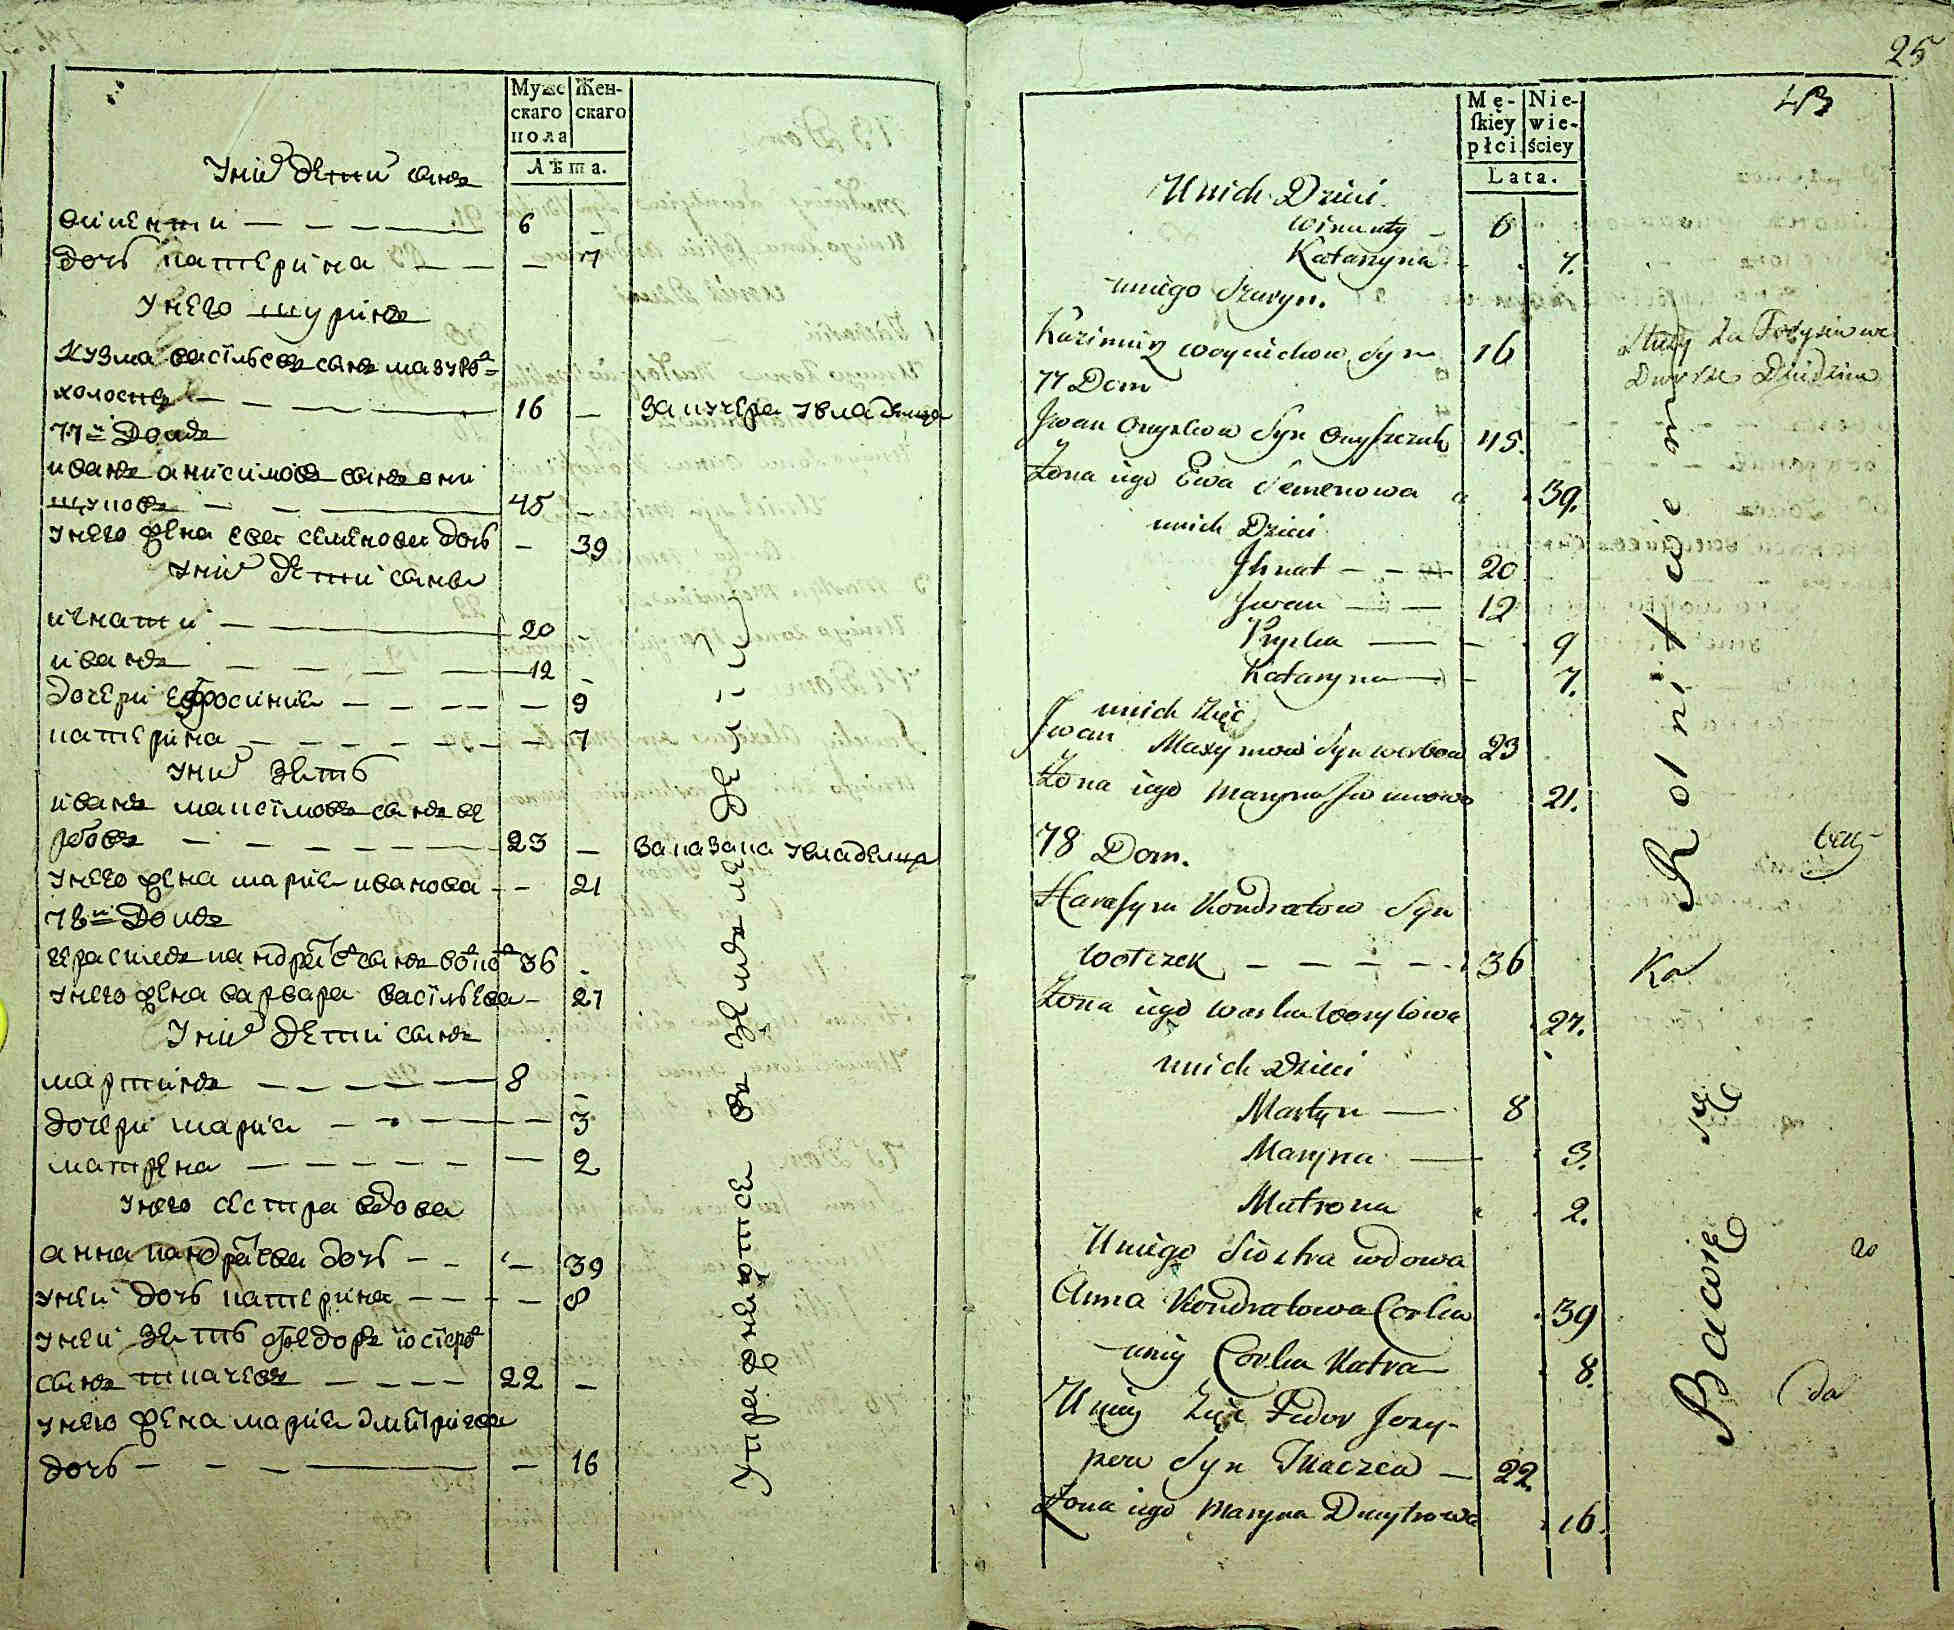 Муже
скаго
пола
Жен-
скаго
Лѣта.
Уних дети сынъ
викенти — — — 6 —
дочь катерина — — — 7
Унего шуринъ
Кузма васильевъ сынъ мазуръ
холостъ — — — 16 — За кучера увладельца
77й Домъ
иванъ анисимовъ сынъ они
щуковъ — — — 45 —
унего жена ева семенова дочь — 39
уних дети сыны
игнати — — 20 —
иванъ — — — — 12 —
дочери ефросиния — — — — — 9
катерина — — — — — — 7
уних зять
иванъ максимовъ сынъ ве
рбовъ — — — — — 23 — За казака увладельца
Унего жена мария иванова — — 21
78й Домъ
герасимъ кондратовъ сынъ 36 —
унего жена варвара васильева — 27
Уних дети сынъ
мартинъ — — — — — 8 —
дочери мария — — — — 3
матрена — — — — — — 2
Унего сестра вдова
анна кондратова дочь — — — 39
уней дочь катерина — — — — 8
уней зять федоръ
сынъ ткачевъ — — — — 22 —
унего жена мария дмитриева
дочь — — — — — 16
Упражняются въ земледелии
25
43
Mę-
skiey
płci.
Nie-
wie-
ściey
Lata.
Unich Dzieci.
Winenty — 6
Kataryna 7.
uniego Szuryn.
Kazimirz Woyciechow Syn 16 Służy za
Dworze
77 Dom
Jwan Onyskow Syn Onyszczuk 45.
Żona iego Ewa Semenowa 39.
unich Dzieci
Jhnat — — — 20
Jwan — — 12
Pryska — — 9
Kataryna — — 7.
unich Zięć
Jwan Maxymow Syn Werbow 23
Żona iego Maryna Jwanowa 21.
78 Dom.
Harasym Kondratow Syn
Wotczek — — — — 36
Żona iego Warka Wasylowa 27.
unich Dzieci
Martyn — 8
Maryna — 3.
Matrona 2.
Uniego Siostra wdowa
Anna Kondratowa Corka 39
uniy Corka Katra 8.
Uniy Zięć Fedor Jozy-
pow Syn Tkaczew — 22.
Żona iego Maryna Dmytrowa 16.
Bawie się Rolnictwem